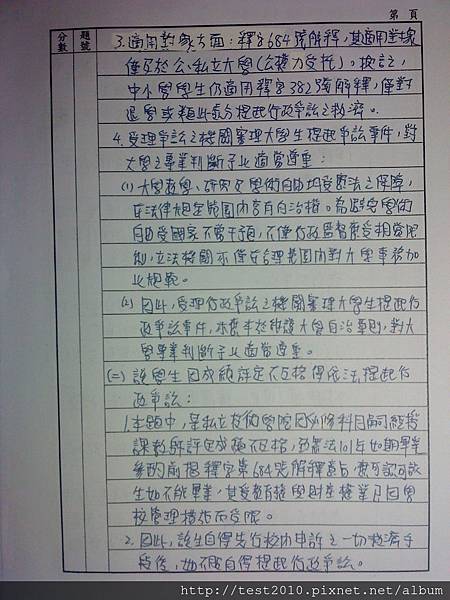 第 頁
分數
題號
3.適用對象方面：釋字684號解釋，其適用對象
僅及於公、私立大學(公權力受託)。換言之，
中小學學生仍適用釋字382號解釋，僅對
退學或類此處分提起行政爭訟之救濟。
4.受理爭訟之機關審理大學生提起爭訟事件，對
大學之專業判斷予以適當尊重：
(1)大學教學、研究及學術自由均受憲法之保障，
在法律規定範圍內享有自治權。為避免學術
自由受國家不當干預，不僅行政監督應受相當限
制，立法機關亦僅在合理範圍內對大學事務加
以規範。
(2)因此，受理行政爭訟之機關審理大學生提起行
政爭訟事件，本應本於維護大學自治原則，對大
學專業判斷予以適當尊重。
(二)該學生因成績評定不及格得依法提起行
政爭訟：
1.本題中，某私立技術學院因必修科目
課教師評定成績不及格，致無法101年如期畢業
參酌前揭釋字第684號解釋意旨，應可認可該
生如不能畢業，其受教育權與財產權業已因學
校管理措施而受限。
2.因此，該生自得先行校內申訴之一切救濟手
段後，如不服自得提起行政爭訟。
http://test2010.pixnet.net/album